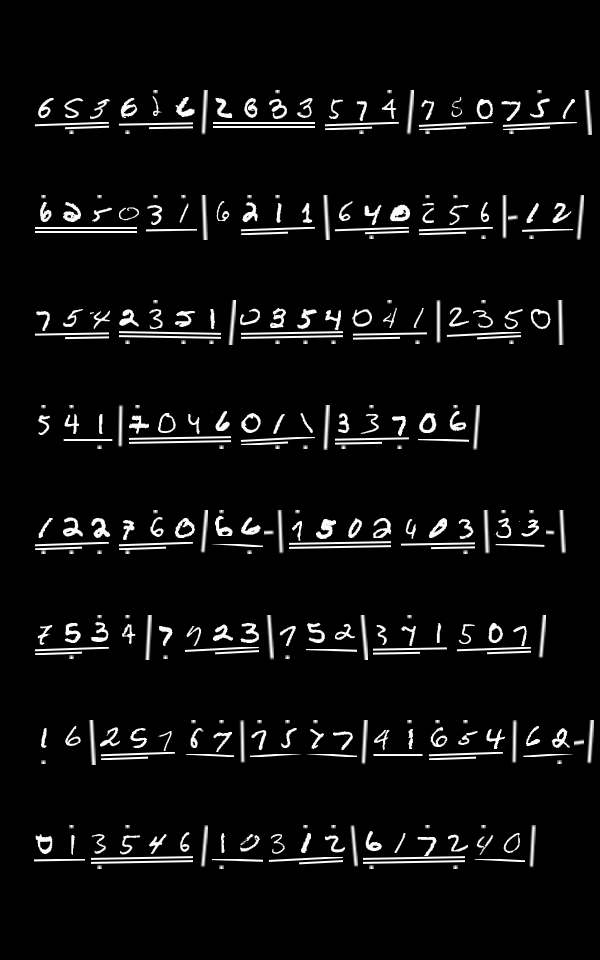 653616|2833574|780751/
625031|6211|640256|-12/
7542351|0354041|2350|
541|7046011|33706/
122760|66-|1502403|33-|
7534|7723|752|341507|
16|25767|7577|41654|62-|
013546|10312|617240|